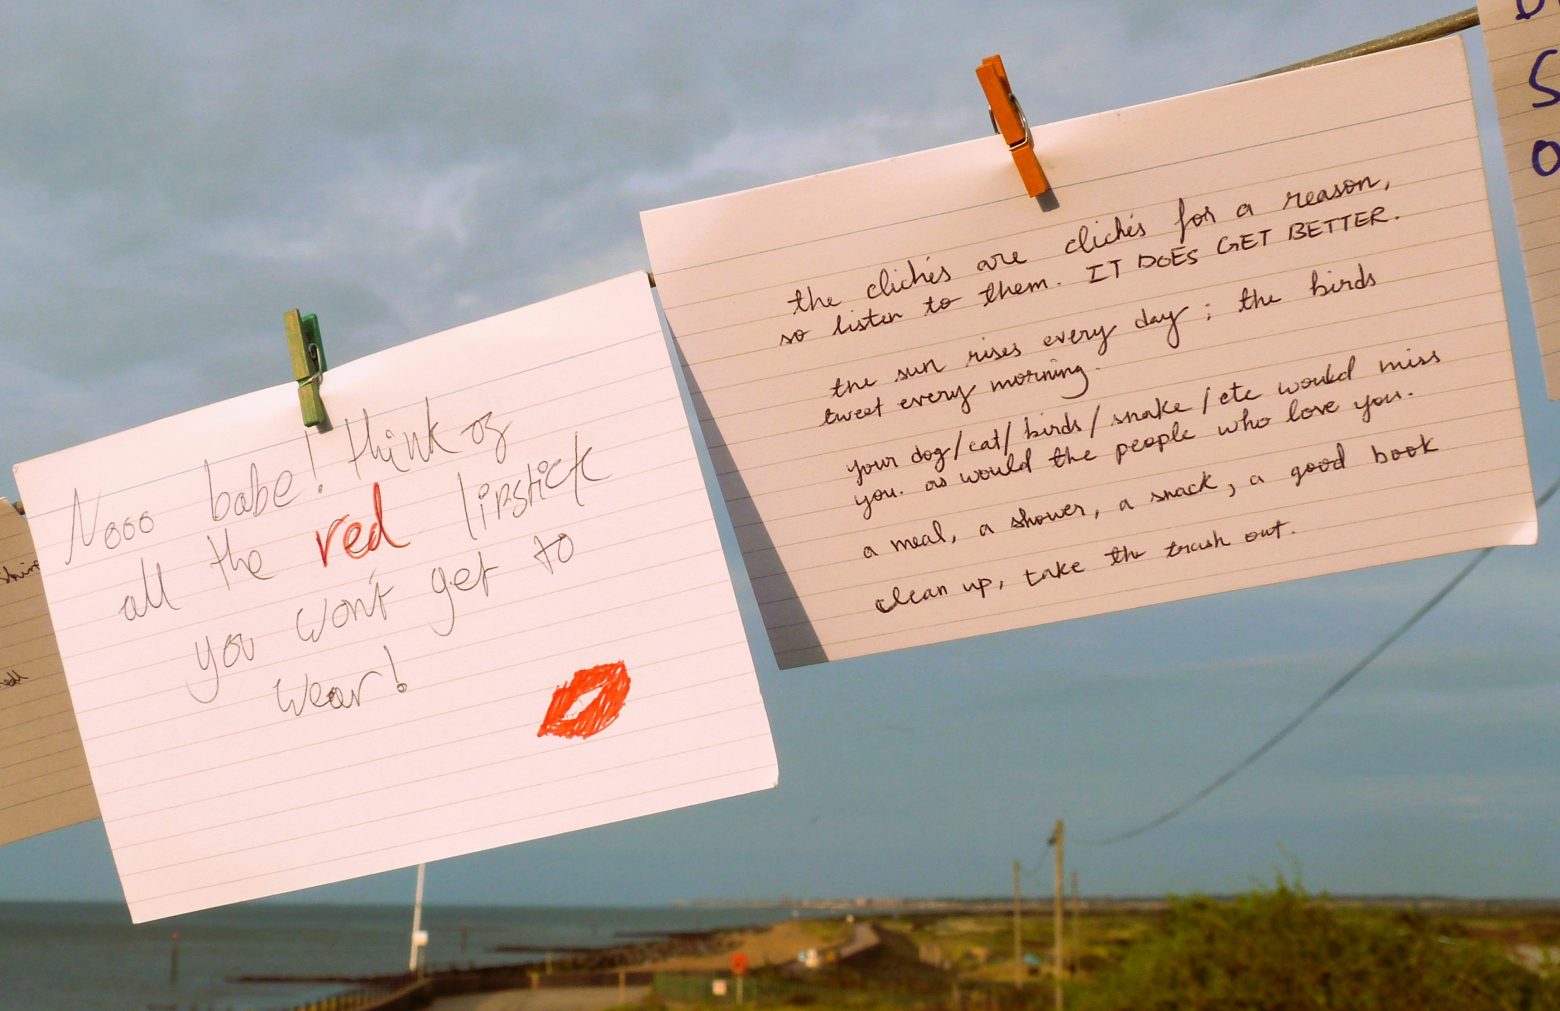 Nooo babe! think of
all the red lipstick
you won't get to
wear!
the clichés are clichés for a reason,
so listen to them. IT DOES GET BETTER.
the sun rises every day; the birds
tweet every morning.
your dog/cat/birds/snake/etc would miss
you. as would the people who love you.
a meal, a shower, a snack, a good book
clean up, take the trash out.